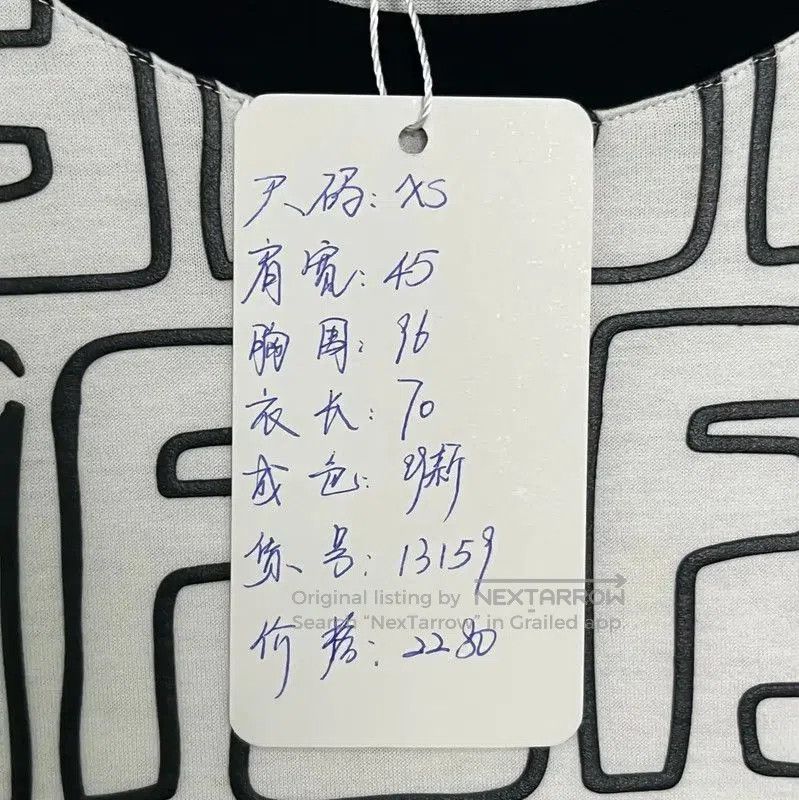 尺码: XS
肩宽: 45
胸围: 96
衣长: 70
成色: 99新
货号: 13159
Original listing by NEXTARROW
Search "NexTarrow" in Grailed app
价格: 2280